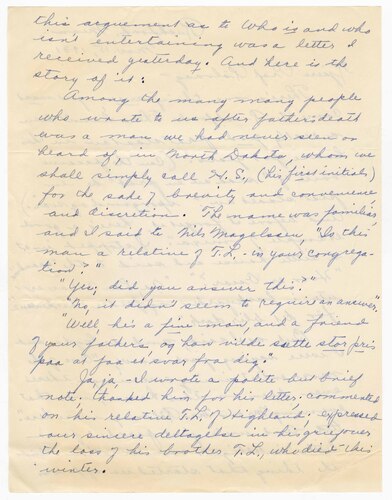 this arguement as to who is and who
isn't entertaining was a letter I
received yesterday. And here is the
story of it:
Among the many many people
who wrote to us after father's death
was a man we had never seen or
heard of, in North Dakota, whom we
shall simply call H. S., (his first initials)
for the sake of brevity and convenience
and discretion. The name was familiar,
and I said to Nils Magelssen, "Is this
man a relative of T. L. - in your congrega-
tion?"
"Yes, did you answer this."
"No, it didn't seem to require an answer."
"Well, he's a fine man, and a friend
of your father's, og han vilde sætte stor pris
paa at faa et svar fra dig."
Ja, ja, - I wrote a polite but brief
note: thanked him for his letter, commented
on his relative T. L. of Highland, expressed
our sincere deltagelse in his grief over
the loss of his brother, T. L., who died this
winter.